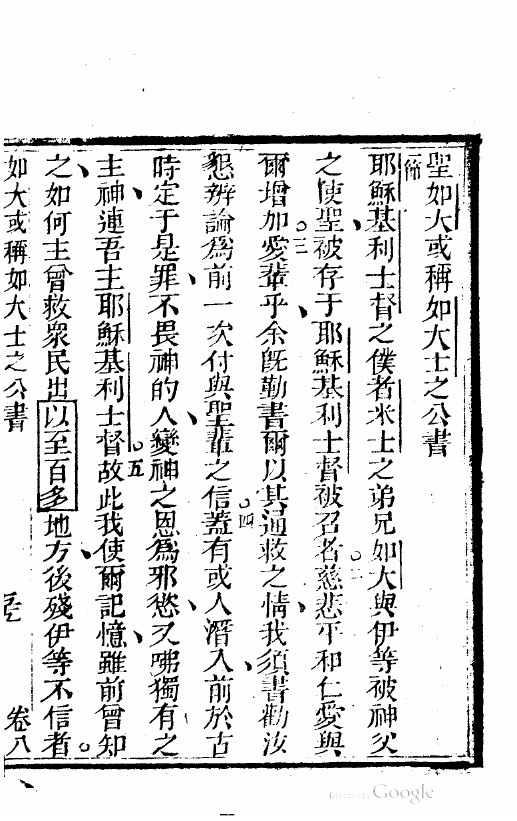 聖如大或稱如大士之公書
一節 耶穌基利士督之僕者米士之弟兄如大與伊等被神父
之使聖被存于耶穌基利士督被召者○二慈悲平和仁愛與
爾增加○三愛輩乎余既勤書爾以其通救之情我須書勸汝
懇辨論為前一次付與聖輩之信○四蓋有或人潛入前於古
時定于是罪不畏神的人變神之恩為邪慾又咈獨有之
主神連吾主耶穌基利士督○五故此我使爾記憶雖前曾知
之如何主曾救眾民出以至百多地方後殘伊等不信者○
如大或稱如大士之公書 卷八
Digitized by Google